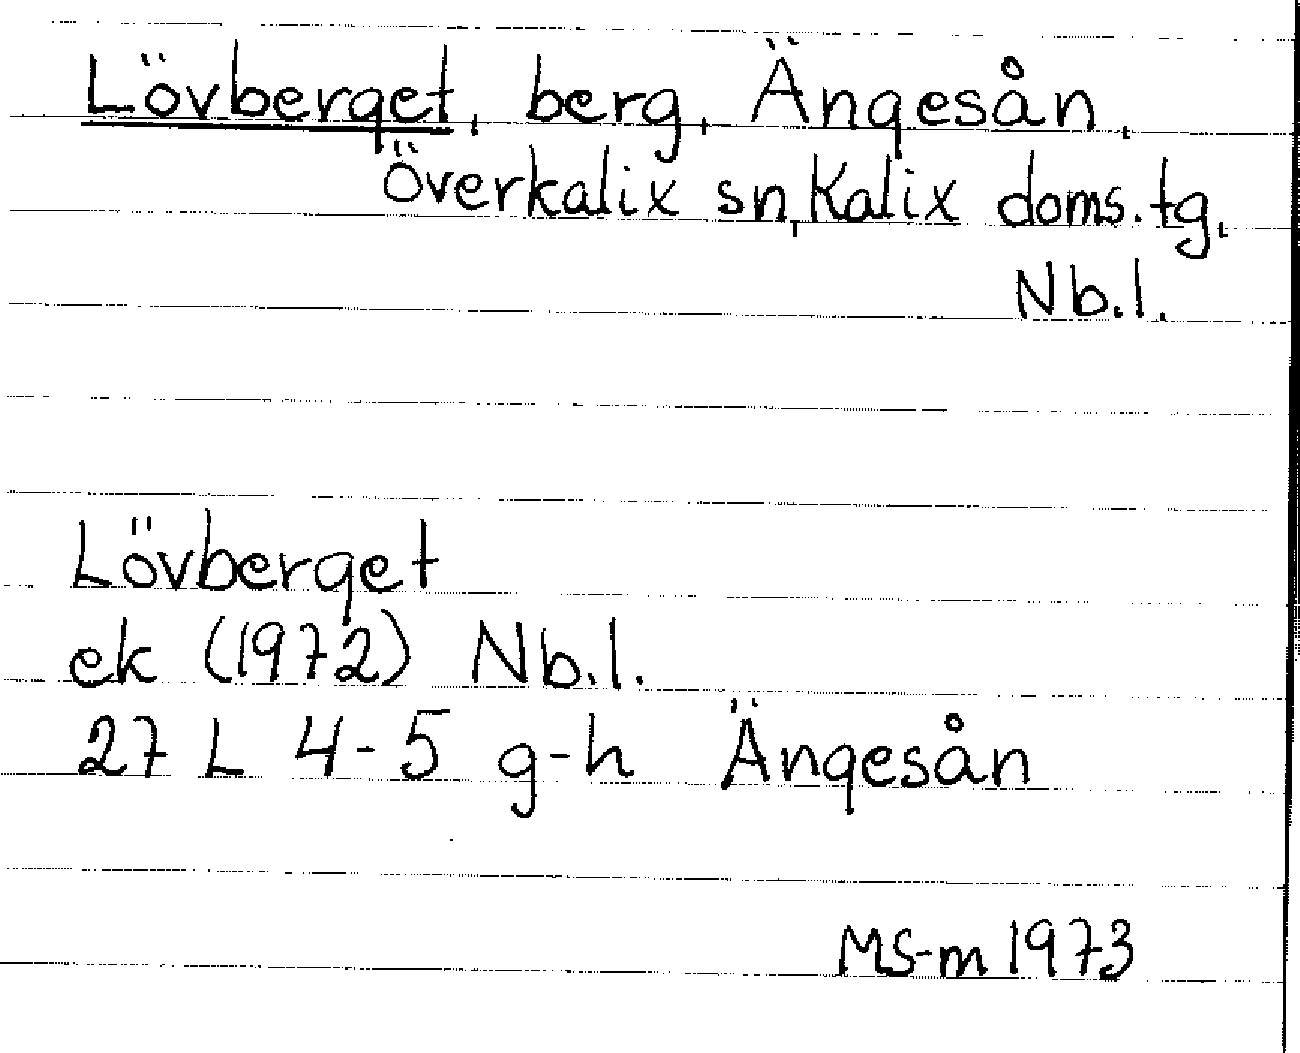 Lövberget, berg, Ängesån,
Överkalix sn, Kalix doms.tg,
Nb.l.
Lövberget
ek (1972) Nb.l.
27 L 4-5 g-h Ängesån
MS-m 1973